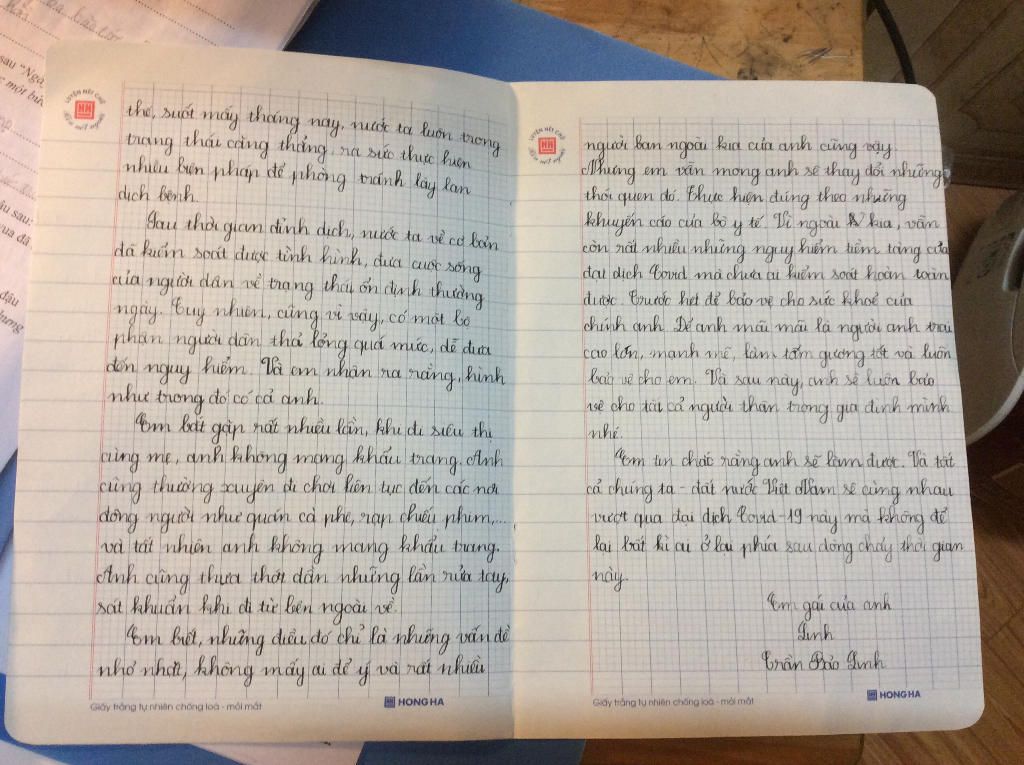 sau "Ngà
một bức
âu sau:
ua đã
đậu
hưng
LUYỆN NÉT CHỮ
RÈN NẾT NGƯỜI
HH
thế, suốt mấy tháng nay, nước ta luôn trong
trạng thái căng thẳng, ra sức thực hiện
nhiều biện pháp để phòng tránh lây lan
dịch bệnh.
Sau thời gian đỉnh dịch, nước ta về cơ bản
đã kiểm soát được tình hình, đưa cuộc sống
của người dân về trạng thái ổn định thường
ngày. Tuy nhiên, cũng vì vậy, có một bộ
phận người dân thả lỏng quá mức, dễ đưa
đến nguy hiểm. Và em nhận ra rằng, hình
như trong đó có cả anh.
Em bắt gặp rất nhiều lần, khi đi siêu thị
cùng mẹ, anh không mang khẩu trang. Anh
cũng thường xuyên đi chơi liên tục đến các nơi
đông người như quán cà phê, rạp chiếu phim,...
và tất nhiên anh không mang khẩu trang.
Anh cũng thưa thớt dần những lần rửa tay,
sát khuẩn khi đi từ bên ngoài về.
Em biết, những điều đó chỉ là những vấn đề
nhỏ nhặt, không mấy ai để ý và rất nhiều
Giấy trắng tự nhiên chống loá - mỏi mắt
HONG HA
LUYỆN NÉT CHỮ
RÈN NẾT NGƯỜI
HH
người bạn ngoài kia của anh cũng vậy.
Nhưng em vẫn mong anh sẽ thay đổi những
thói quen đó. Thực hiện đúng theo những
khuyến cáo của bộ y tế. Vì ngoài kia, vẫn
còn rất nhiều những nguy hiểm tiềm tàng của
đại dịch Covid mà chưa ai kiểm soát hoàn toàn
được. Trước hết để bảo vệ cho sức khoẻ của
chính anh. Để anh mãi mãi là người anh trai
cao lớn, mạnh mẽ, làm tấm gương tốt và luôn
bảo vệ cho em. Và sau này, anh sẽ luôn bảo
vệ cho tất cả người thân trong gia đình mình
nhé.
Em tin chắc rằng anh sẽ làm được. Và tất
cả chúng ta - đất nước Việt Nam sẽ cùng nhau
vượt qua đại dịch Covid-19 này mà không để
lại bất kì ai ở lại phía sau dòng chảy thời gian
này.
Em gái của anh
Linh
Trần Bảo Linh
Giấy trắng tự nhiên chống loá - mỏi mắt
HONG HA